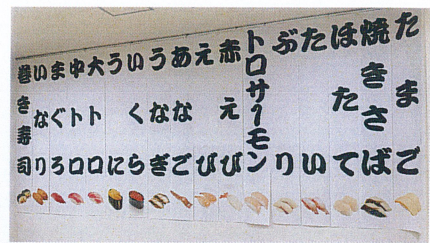 たまご
焼きさば
ほたて
たい
ぶり
トロサーモン
赤えび
えび
あなご
うなぎ
いくら
うに
大トロ
中トロ
まぐろ
いなり
巻き寿司